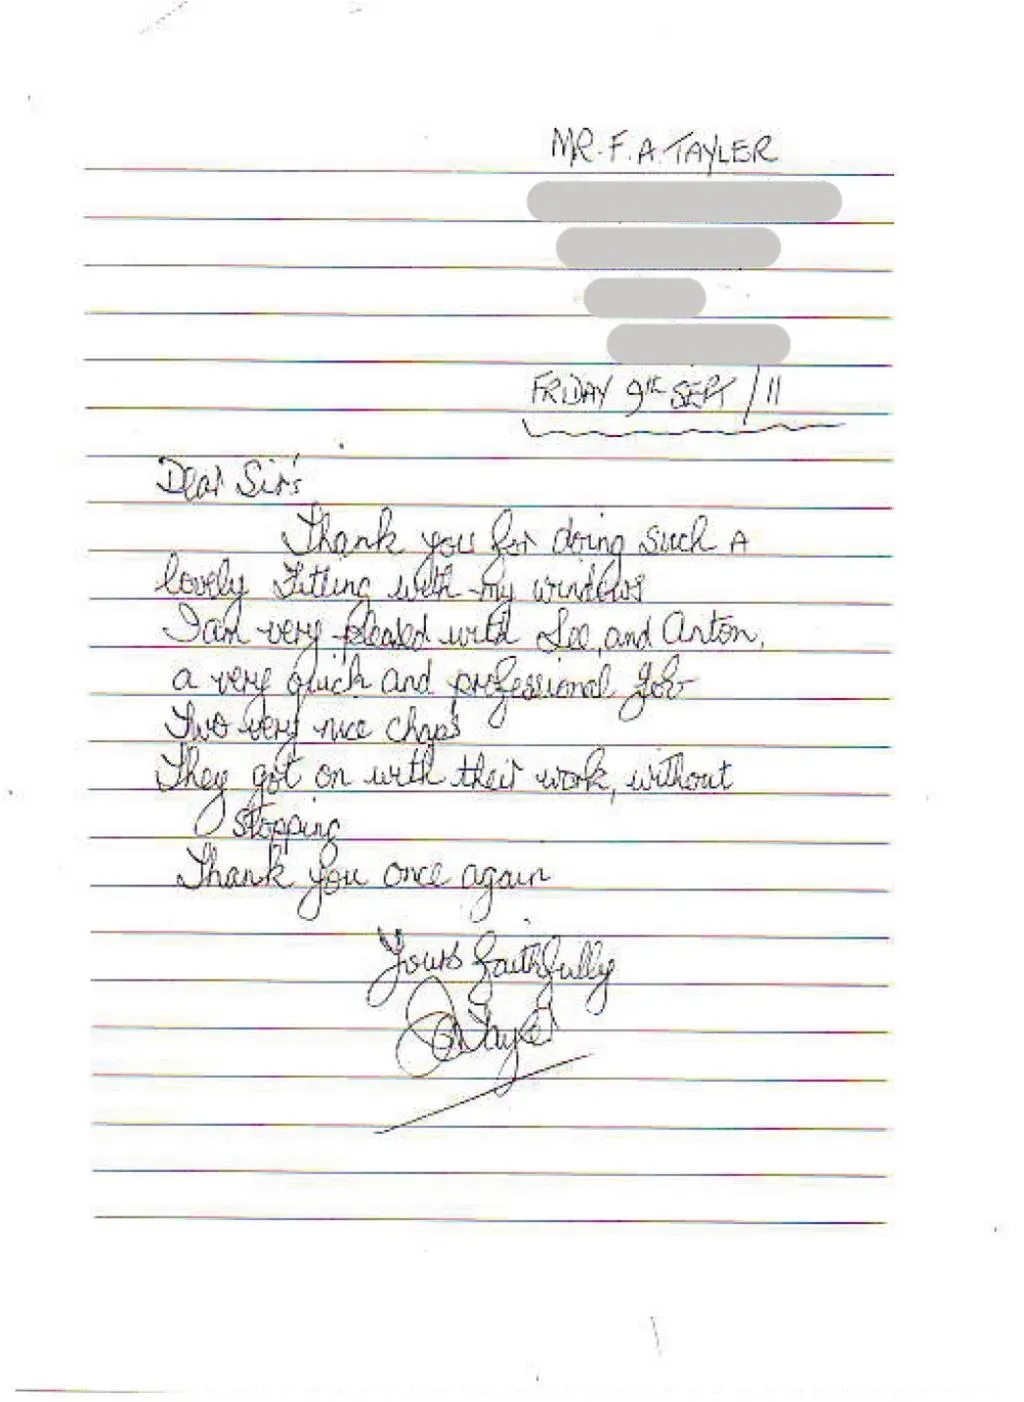 MR. F. A. TAYLER
FRIDAY 9th SEPT / 11
Dear Sir's
Thank you for doing such A
lovely Fitting with my windows
I am very pleased with Lee, and Anton,
a very quick and professional job
Two very nice chap's
They got on with their work, without
stopping
Thank you once again
Yours faithfully